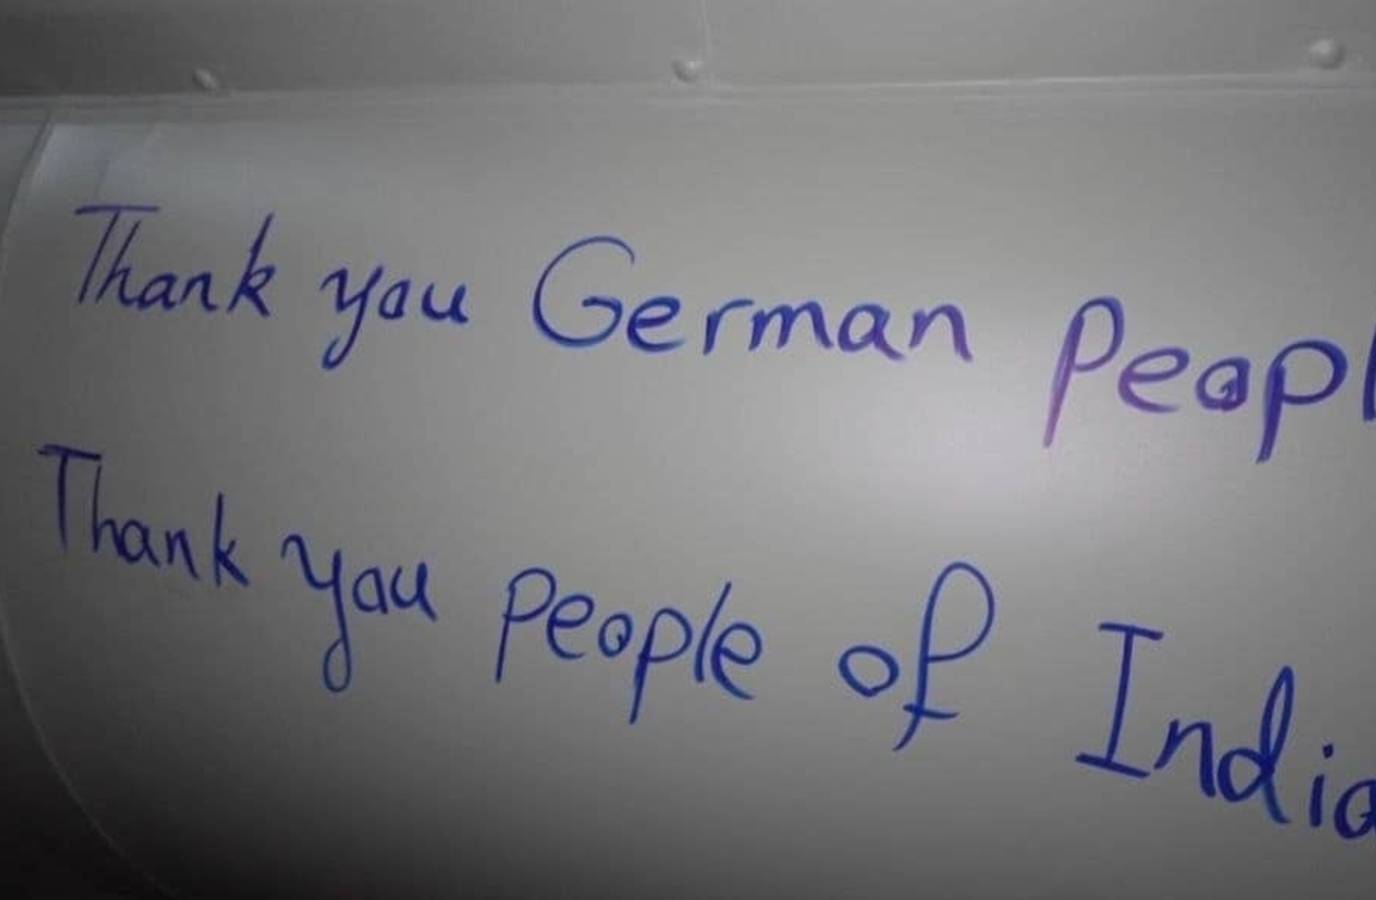 Thank you German Peopl
Thank you People of India